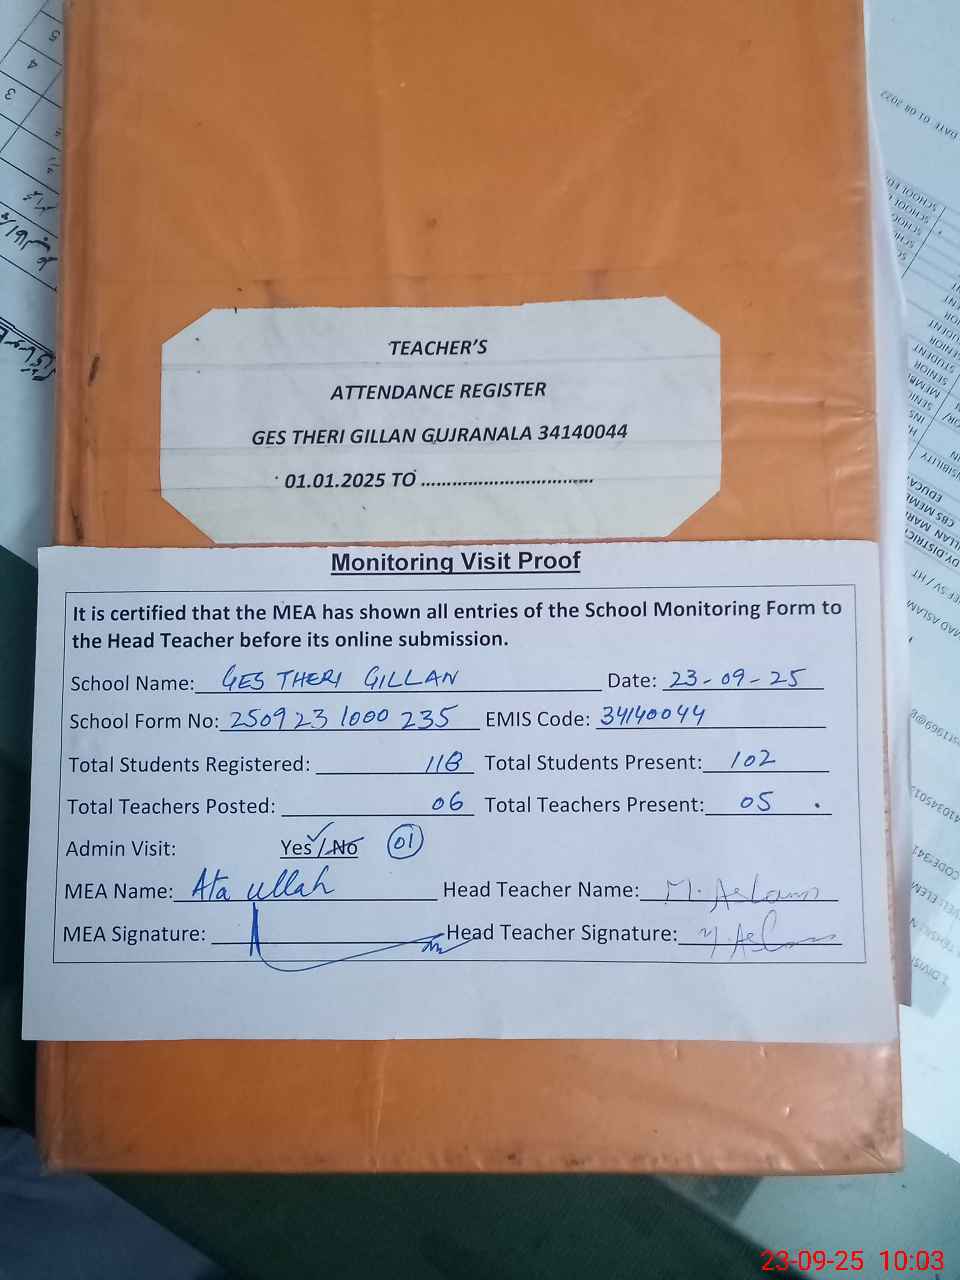 TEACHER'S
ATTENDANCE REGISTER
GES THERI GILLAN GUJRANALA 34140044
01.01.2025 TO ................................
Monitoring Visit Proof
It is certified that the MEA has shown all entries of the School Monitoring Form to
the Head Teacher before its online submission.
School Name: GES THERI GILLAN Date: 23-09-25
School Form No: 250923 1000 235 EMIS Code: 34140044
Total Students Registered: 118 Total Students Present: 102
Total Teachers Posted: 06 Total Teachers Present: 05
Admin Visit: Yes / No 01
MEA Name: Ata ullah Head Teacher Name: M. Aslam
MEA Signature: Head Teacher Signature: M. Aslam
DATE 01 08 2022
23-09-25 10:03